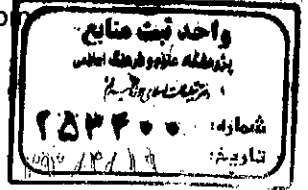 om
واحد ثبت منابع
پژوهشگاه علوم و فرهنگ اسلامی
شماره: ۲۵۳۴۰۰
تاریخ: